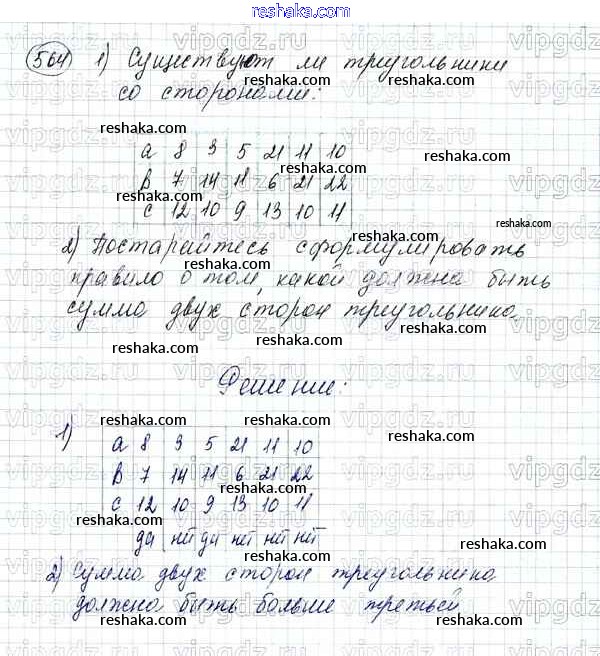 www.reshaka.com
564 1) Существуют ли треугольники
со сторонами:
a 8 3 5 21 11 10
b 7 14 11 6 21 22
c 12 10 9 13 10 11
2) Постарайтесь сформулировать
правило о том, какой должна быть
сумма двух сторон треугольника
Решение:
1)
a 8 3 5 21 11 10
b 7 14 11 6 21 22
c 12 10 9 13 10 11
да нет да нет нет нет
2) Сумма двух сторон треугольника
должна быть больше третьей